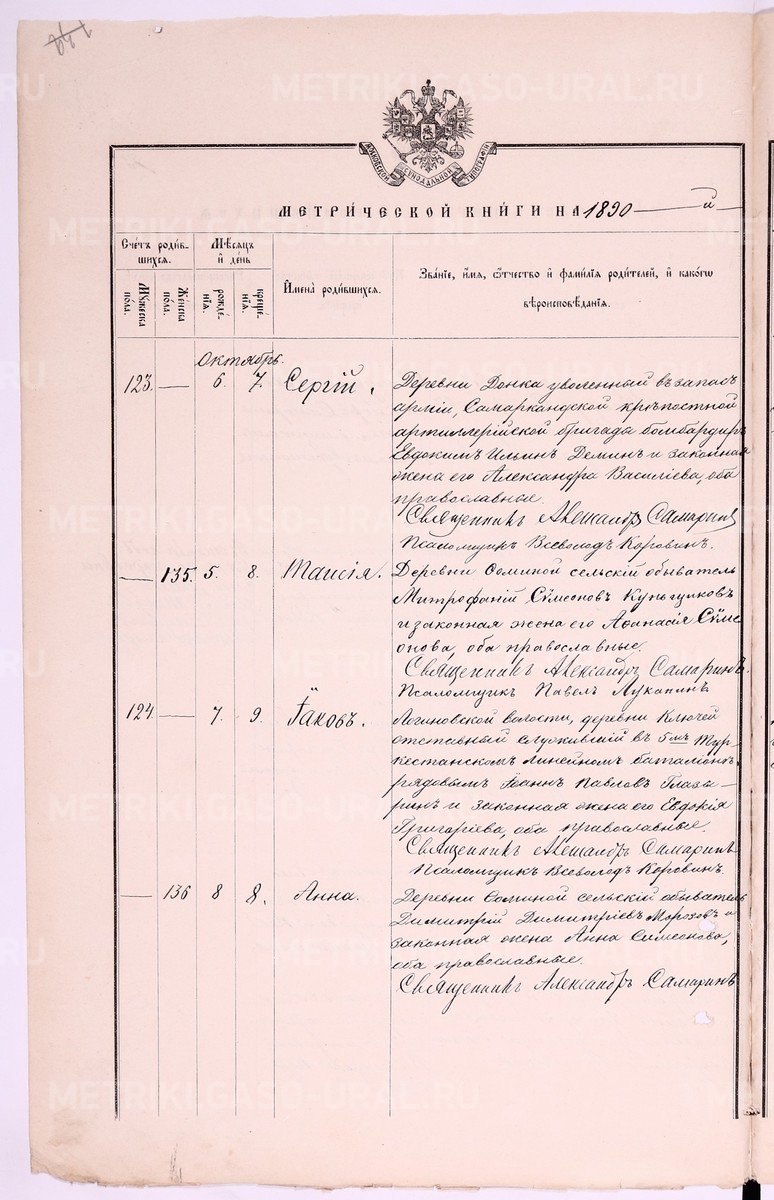 METRIKI.GASO-URAL.RU
МОСКОВСКОЙ СѴНОДАЛЬНОЙ ТИПОГРАФІИ
МЕТРИ́ЧЕСКОЙ КНИ́ГИ НА 1890 й
Сче́тъ роди́в-
шихся.
Мѣ́сяцъ
и҆ де́нь
Му́жеска
по́ла.
Же́нска
по́ла.
рожде́-
нїя.
креще́-
нїя.
И҆мена̀ роди́вшихся.
Зва́нїе, и҆́мя, ѻ҆́тчество и҆ фами́лїя роди́телей, и҆ како́гѡ
вѣроисповѣ́данїя.
Октябрь.
123. — 6. 7. Сергій.
Деревни Донка уволенный въ запасъ
арміи, Самаркандской крѣпостной
артиллерійской бригады бомбардиръ
Евдокимъ Ильинъ Деминъ и законная
жена его Александра Василіева, оба
православные.
Священникъ Александръ Самаринъ
Псаломщикъ Всеволодъ Коровинъ.
— 135. 5. 8. Таисія.
Деревни Соминой сельскій обыватель
Митрофаній Сѵмеоновъ
и законная жена его Аѳанасія Сѵме
онова, оба православные.
Священникъ Александръ Самаринъ.
Псаломщикъ Павелъ Лукан
124. — 7. 9. Іаковъ.
Логиновской волости, деревни Ключей
отставный служившій въ 5мъ Тур-
кестанскомъ линейномъ баталіонѣ
рядовымъ Іоаннъ Павловъ Глазы-
ринъ и законная жена его Евдокія
Григоріева, оба православные.
Священникъ Александръ Самаринъ
Псаломщикъ Всеволодъ Коровинъ.
— 136 8 8. Анна.
Деревни Соминой сельскій обыватель
Димитрій Димитріевъ Морозовъ и
законная жена Анна Симеонова,
оба православные.
Священникъ Александръ Самаринъ